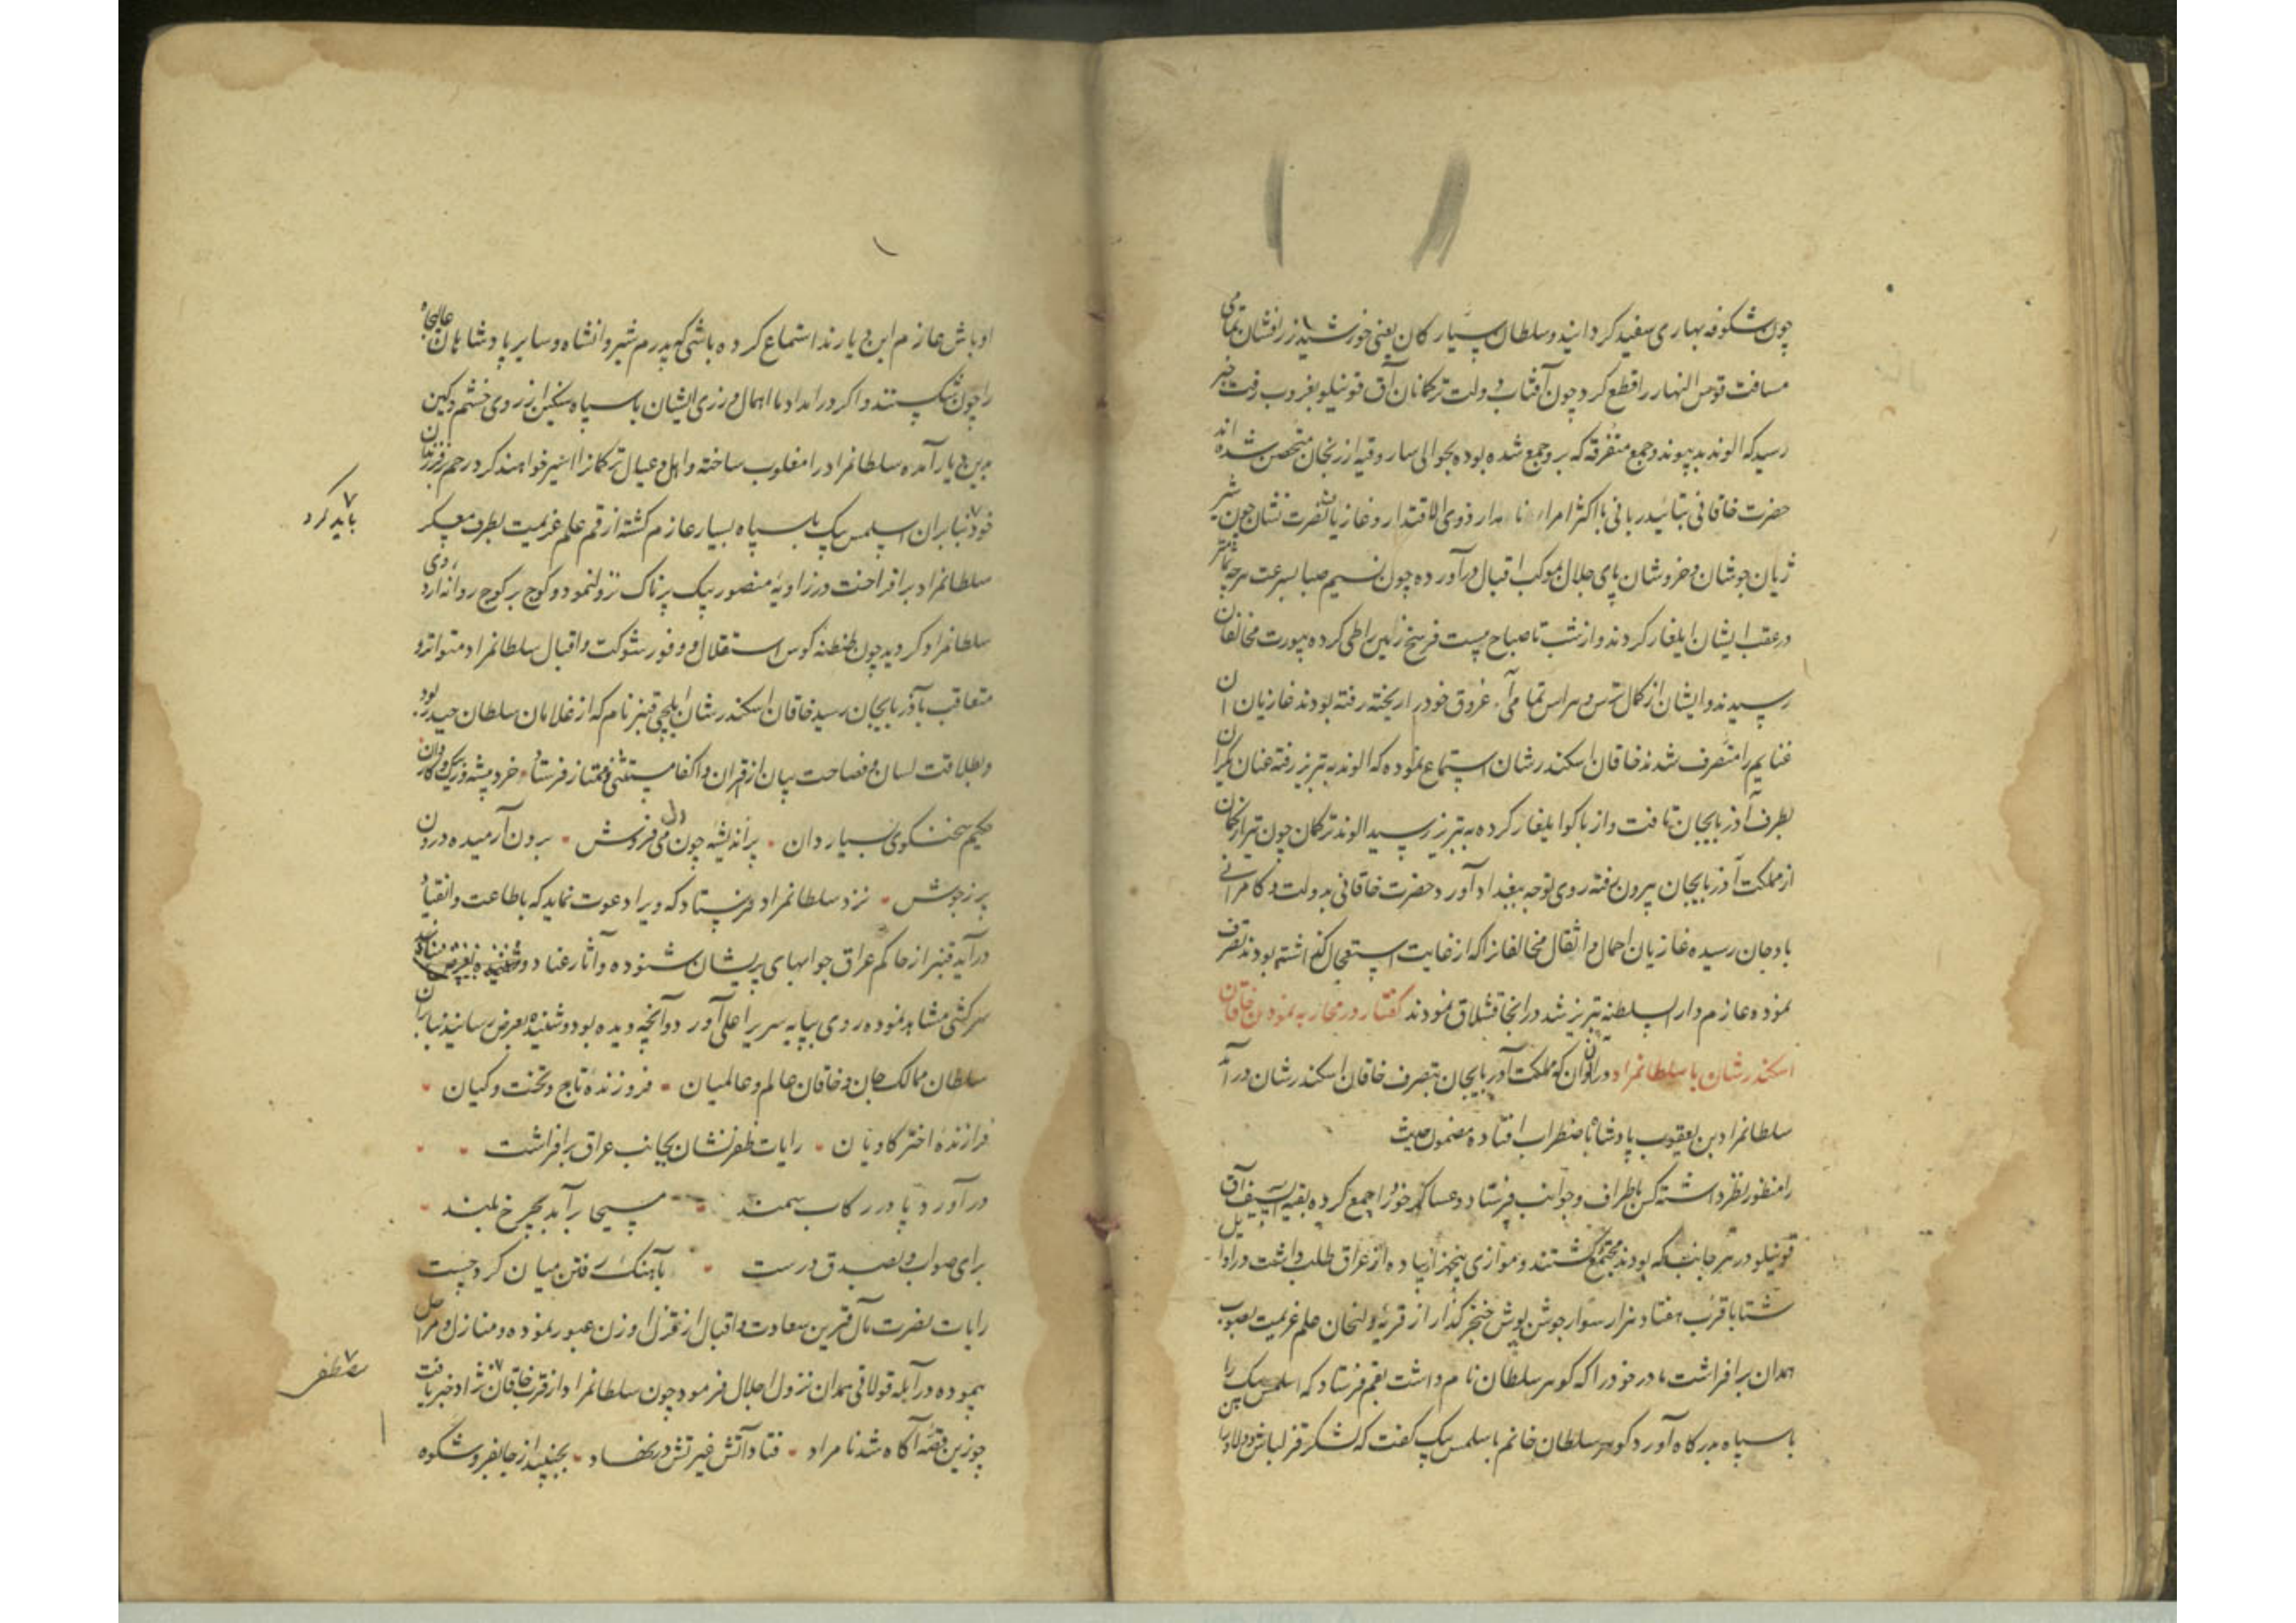 چون شکوفه بهاری سفید گردانید و سلطان سیارکان یعنی خورشید زرافشان تمامی
مسافت قوس النهار را قطع کرد چون آفتاب دولت ترکمانان آق قوینلو بغروب رفت خبر
رسید که الوند بدپیوند و جمع متفرقه که برو جمع شده بود بحوالی سارو قیه ازرنجان متحصن شده اند
حضرت خاقانی بتائید ربانی با اکثر امراء نامدار ذوی الاقتدار و غازیان نصرت نشان چون شیر
ژیان جوشان و خروشان پای جلال بموکب اقبال درآورده چون نسیم صبا بسرعت هرچه تمامتر
در عقب ایشان ایلغار کردند و از شب تا صباح بیست فرسخ زمین را طی کرده بیورت مخالفان
رسیدند و ایشان از کمال ترس و هراس تمامی غروق خود را ریخته رفته بودند غازیان آن
غنایم را متصرف شدند خاقان اسکندرشان استماع نموده که الوند به تبریز رفته عنان یکران
بطرف آذربایجان تافت و از باکو ایلغار کرده به تبریز رسید الوند ترکمان چون تیر از کمان
از مملکت آذربایجان بیرون رفته روی توجه ببغداد آورد و حضرت خاقانی بدولت و کامرانی
باوجان رسیده غازیان احمال و اثقال مخالفانرا که از غایت استعجال گذاشته بودند تصرف
نموده عازم دار السلطنه تبریز شد در انجا قشلاق نمودند گفتار در محاربه نمودن خاقان
اسکندرشان با سلطانمراد در آن اوان که مملکت آذربایجان بتصرف خاقان اسکندرشان درآمد
سلطانمراد بن یعقوب پادشاه باضطراب افتاده مضمون حدیث
را منظور نظر داشته کس باطراف و جوانب فرستاد و عساکر خود را جمع کرده بقیه السیف آق
قوینلو در هر جانب که بودند مجتمع گشتند و موازی پنجهزار پیاده از عراق طلب داشت در اوایل
شتا با قرب هفتاد هزار سوار جوشن پوش خنجر گذار از قریه ولنجان علم عزیمت بصوب
همدان برافراشت مادر خود را که گوهر سلطان نام داشت بقم فرستاد که اسلمس بیک را
با سپاه بدرگاه آورد گوهر سلطان خانم با سلمس بیک گفت که لشکر قزلباش و
اوباش عازم این دیارند استماع کرده باشی که پدرم شیروانشاه و سایر پادشاهان عالیجاه
را چون شکستند و اگر در امداد ما اهمال ورزی ایشان با سپاه سنگین از روی خشم و کین
بدین دیار آمده سلطانمراد را مغلوب ساخته و اهل و عیال ترکمانرا اسیر خواهند کرد رحم بر فرزندان
خود بنابران اسلمس بیک با سپاه بسیار عازم گشته از قم علم عزیمت بطرف معسکر
باید کرد
سلطانمراد برافراخت و در زاویه منصور بیک پرناک نزول نمود و کوچ بر کوچ روانه اردوی
سلطانمراد گردید چون طنطنه کوس استقلال و وفور شوکت و اقبال سلطانمراد متواتر و
متعاقب بآذربایجان رسید خاقان اسکندرشان ایلچی قنبر نام که از غلامان سلطان حیدر بود
و بطلاقت لسان و فصاحت بیان از اقران و اکفا مستثنی و ممتاز فرستاد خرد پیشه و زیرک و کاردان
حکیم سخنگوی بسیار دان پراندیشه چون می فروش برون آرمیده درون
پر ز جوش نزد سلطانمراد فرستاد که ویرا دعوت نماید که باطاعت و انقیاد
درآید قنبر از حاکم عراق جوابهای پریشان شنوده و آثار عناد و
سرکشی مشاهد نموده روی بپایه سریر اعلی آورد و آنچه دیده بود و شنیده بعرض رسانید بنابران
سلطان ممالک جان و خاقان عالم و عالمیان فروزنده تاج و تخت و کیان
فرازنده اختر کاویان رایات ظفرنشان بجانب عراق برافراشت
درآورد پا در رکاب سمند مسیحا برآمد بچرخ بلند
برای صواب و بصدق درست بآهنگ رفتن میان کرد چست
رایات نصرت مآل قرین سعادت و اقبال از قزل اوزن عبور نموده و منازل و مراحل
پیموده در آبله قولاقی همدان نزول اجلال فرمود چون سلطانمراد از قرب خاقان نژاد خبر یافت
مظفر
چو زین قصه آگاه شد نامراد فتاد آتش غیرتش در نهاد بجنبید از جا بفر و شکوه